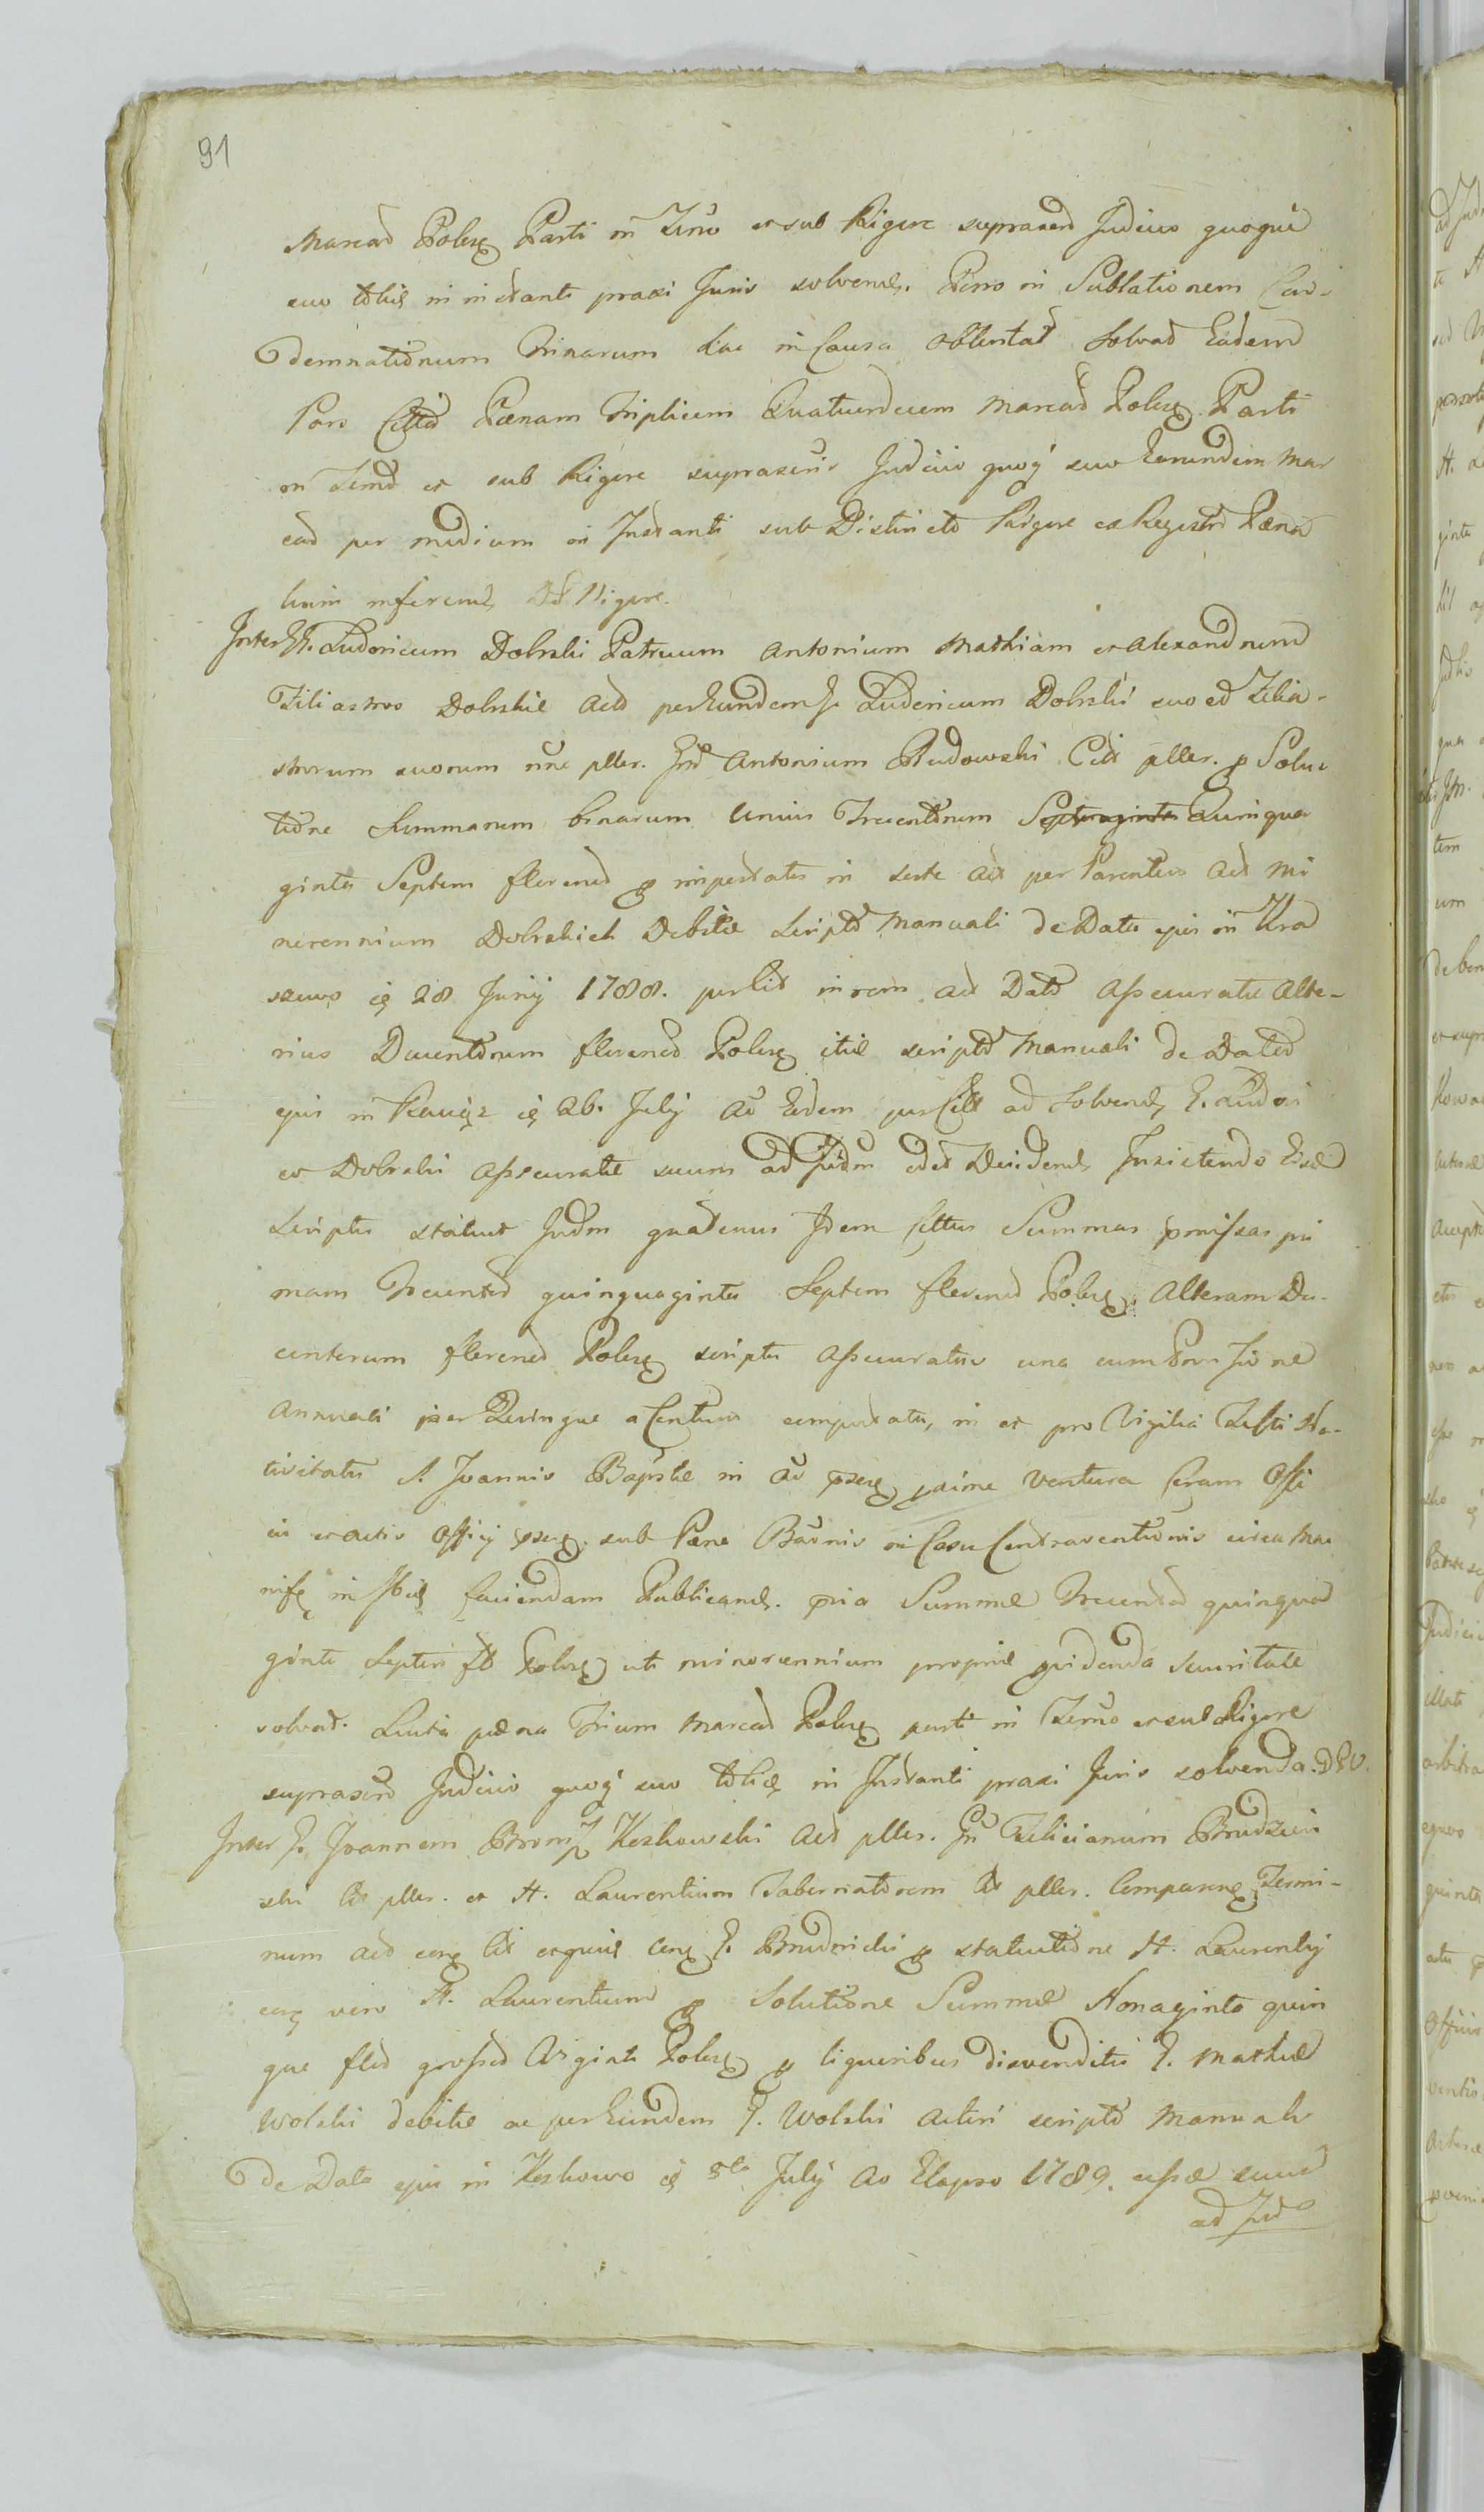 91
Marcar Polng Parti in Trno et sub Rigore suprascro Judicio quoque
suo tblis in instanti praxi Juris solvend. Porro in Sublationem Con-
demnationum Trinarum hac in Causa obtentar solvat Eadem
Pars Citta Pænam Triplicem Quatuordecem Marcar Polng Parti
in Termo et sub Rigore suprascris Judicio quoq suo Earundem Mar
car per medium in Instanti sub Distincto Rigore ex Regestro Pæna
lium inferend Dt Vigore.
Inter E. Ludovicum Dolnski Patruum Antonium Mathiam et Alexandrum
Filiastros Dolnskie Act per Eundem E. Ludovicum Dolnski suo et Filia-
strorum suorum nne pller. Grd Antonium Rudowski Citt pller. p Solu
tione Summarum binarum Unius Trecentorum Septuaginta Quinqua
ginta Septem florenor p impestata in sorte Act per Parentes Act Mi
norennium Dolnskich Debitæ scripto Manuali de Data ejus in Kra
szewo 28 Junij 1788. per Cit in rem Act Dato Assecuratæ Alte-
rius Ducentorum florenor Polng itid scripto Manuali de Data
ejus in 26. July Ao Eodem per Citt ad solvend E. Ludovi
co Dolnski Assecuratæ suum ad Judm edit Decidend Insistendo Eisd
scriptis statuit Judm quatenus Idem Cittus Summas pmissas pri
mam Trecentor quinquaginta Septem florenor Polng, Alteram Du-
centorum florenor Polng scriptis Assecuratas una cum Provisione
Annuali per Quinque a Centum computata, in et pro Vigilia Festi Na-
tivitatis S. Joannis Baptistæ in Ao psng pxime Ventura Coram Offi
cio et Actis Officij psng. sub Pæna Bannis in Casu Contraventionis circa Ma
nife in faciendam Publicand. pria Summæ Trecentor quinqua
ginta Septem fl Polng uti minorennium propriæ pvidenda securitate
solvat. Luita pæna Trium Marcar Polng parti in Termo et sub Rigore
suprascro Judicio quoq suo tblis in Instanti praxi Juris solvenda. DV.
Inter E. Joannem Bromz Kezkowski Act pller. Grd Felicianum Brudzew
ski Cit pller. et H. Laurentium Tabernatorem Cit pller. Comparng Termi-
num Act Cit exquis E. Brudzewski p statutione H. Laurentij
vero H. Laurentium p Solutione Summæ Nonaginta quin
que fler grossor Viginti Polng p liquoribus divenditis E. Mathiæ
Wolski debitæ ac per Eundem E. Wolski Actori scripto Manuali
de Data ejus in Kezkowo 8va July Ao Elapso 1789. cessæ suum
ad Judo